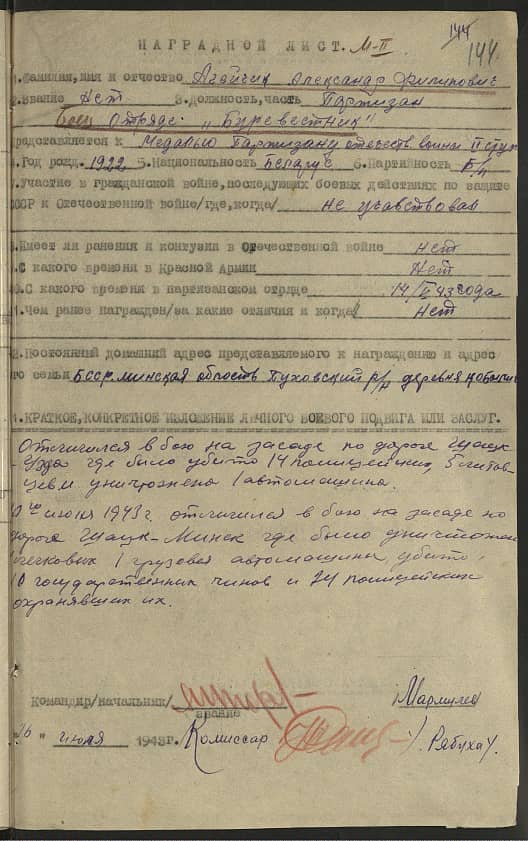 144
144
НАГРАДНОЙ ЛИСТ. М-II
1.Фамилия,имя и отчество Агейчик Александр Филипович
2.Звание Нет 3.Должность,часть Партизан
боец Отряда „Буревестник"
представляется к Медалью Партизану отечеств. войны II ступ
4.Год рожд. 1922 5.Национальность Беларус 6.Партийность Б/п
7.Участие в гражданской войне,последующих боевых действиях по защите
СССР к Отечественной войне/где,когда/ не учавствовал
8.Имеет ли ранения и контузии в Отечественной войне нет
9.С какого времени в Красной Армии Нет
10.С какого времени в партизанском отряде 14/II 43 года
11.Чем ранее награжден/за какие отличия и когда/ Нет
12.Постоянный домашний адрес представляемого к награждению и адрес
его семьи БССР. Минская область Пуховский р/н деревня
1.КРАТКОЕ,КОНКРЕТНОЕ ИЗЛОЖЕНИЕ ЛИЧНОГО БОЕВОГО ПОДВИГА ИЛИ ЗАСЛУГ.
Отличился в бою на засаде по дороге Шацк
Узда где было убито 14 полицейских, 5
уничтожена 1 автомашина.
10го июля 1943 г. отличился в бою на засаде по
дороге Шацк-Минск где было уничтожен
легковых 1 грузовая автомашины, убито,
10 государственных чинов и 24 полицейских
охранявших их.
Командир/начальник/
звание
"16" июля 1943г. Комиссар /Рябуха/